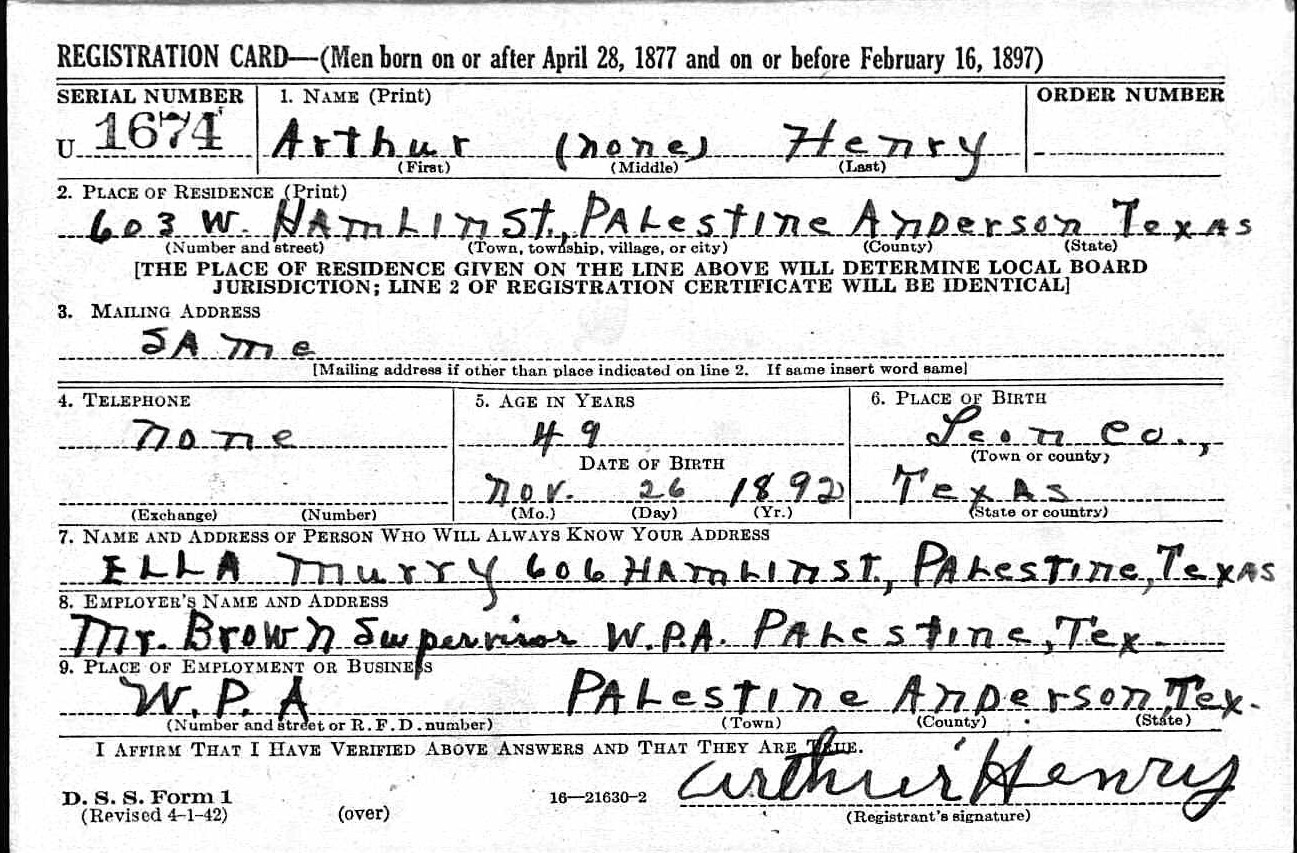 REGISTRATION CARD—(Men born on or after April 28, 1877 and on or before February 16, 1897)
SERIAL NUMBER 1. NAME (Print) ORDER NUMBER
U 1674 Arthur (none) Henry
(First) (Middle) (Last)
2. PLACE OF RESIDENCE (Print)
603 W. HAmLIn St., PALestIne AnDerson TexAs
(Number and street) (Town, township, village, or city) (County) (State)
[THE PLACE OF RESIDENCE GIVEN ON THE LINE ABOVE WILL DETERMINE LOCAL BOARD
JURISDICTION; LINE 2 OF REGISTRATION CERTIFICATE WILL BE IDENTICAL]
3. MAILING ADDRESS
SAme
[Mailing address if other than place indicated on line 2. If same insert word same]
4. TELEPHONE 5. AGE IN YEARS 6. PLACE OF BIRTH
none 49 Leon Co.,
(Town or county)
DATE OF BIRTH
nov. 26 1892 TexAs
(Exchange) (Number) (Mo.) (Day) (Yr.) (State or country)
7. NAME AND ADDRESS OF PERSON WHO WILL ALWAYS KNOW YOUR ADDRESS
ELLA murry 606 HAmLIn ST., PALestIne, TexAs
8. EMPLOYER'S NAME AND ADDRESS
Mr. Brown Supervisor W.P.A. PALestine, Tex.
9. PLACE OF EMPLOYMENT OR BUSINESS
W. P. A PALestIne AnDerson, Tex.
(Number and street or R. F. D. number) (Town) (County) (State)
I AFFIRM THAT I HAVE VERIFIED ABOVE ANSWERS AND THAT THEY ARE TRUE.
Arthur Henry
D. S. S. Form 1 16—21630-2
(Revised 4-1-42) (over) (Registrant's signature)